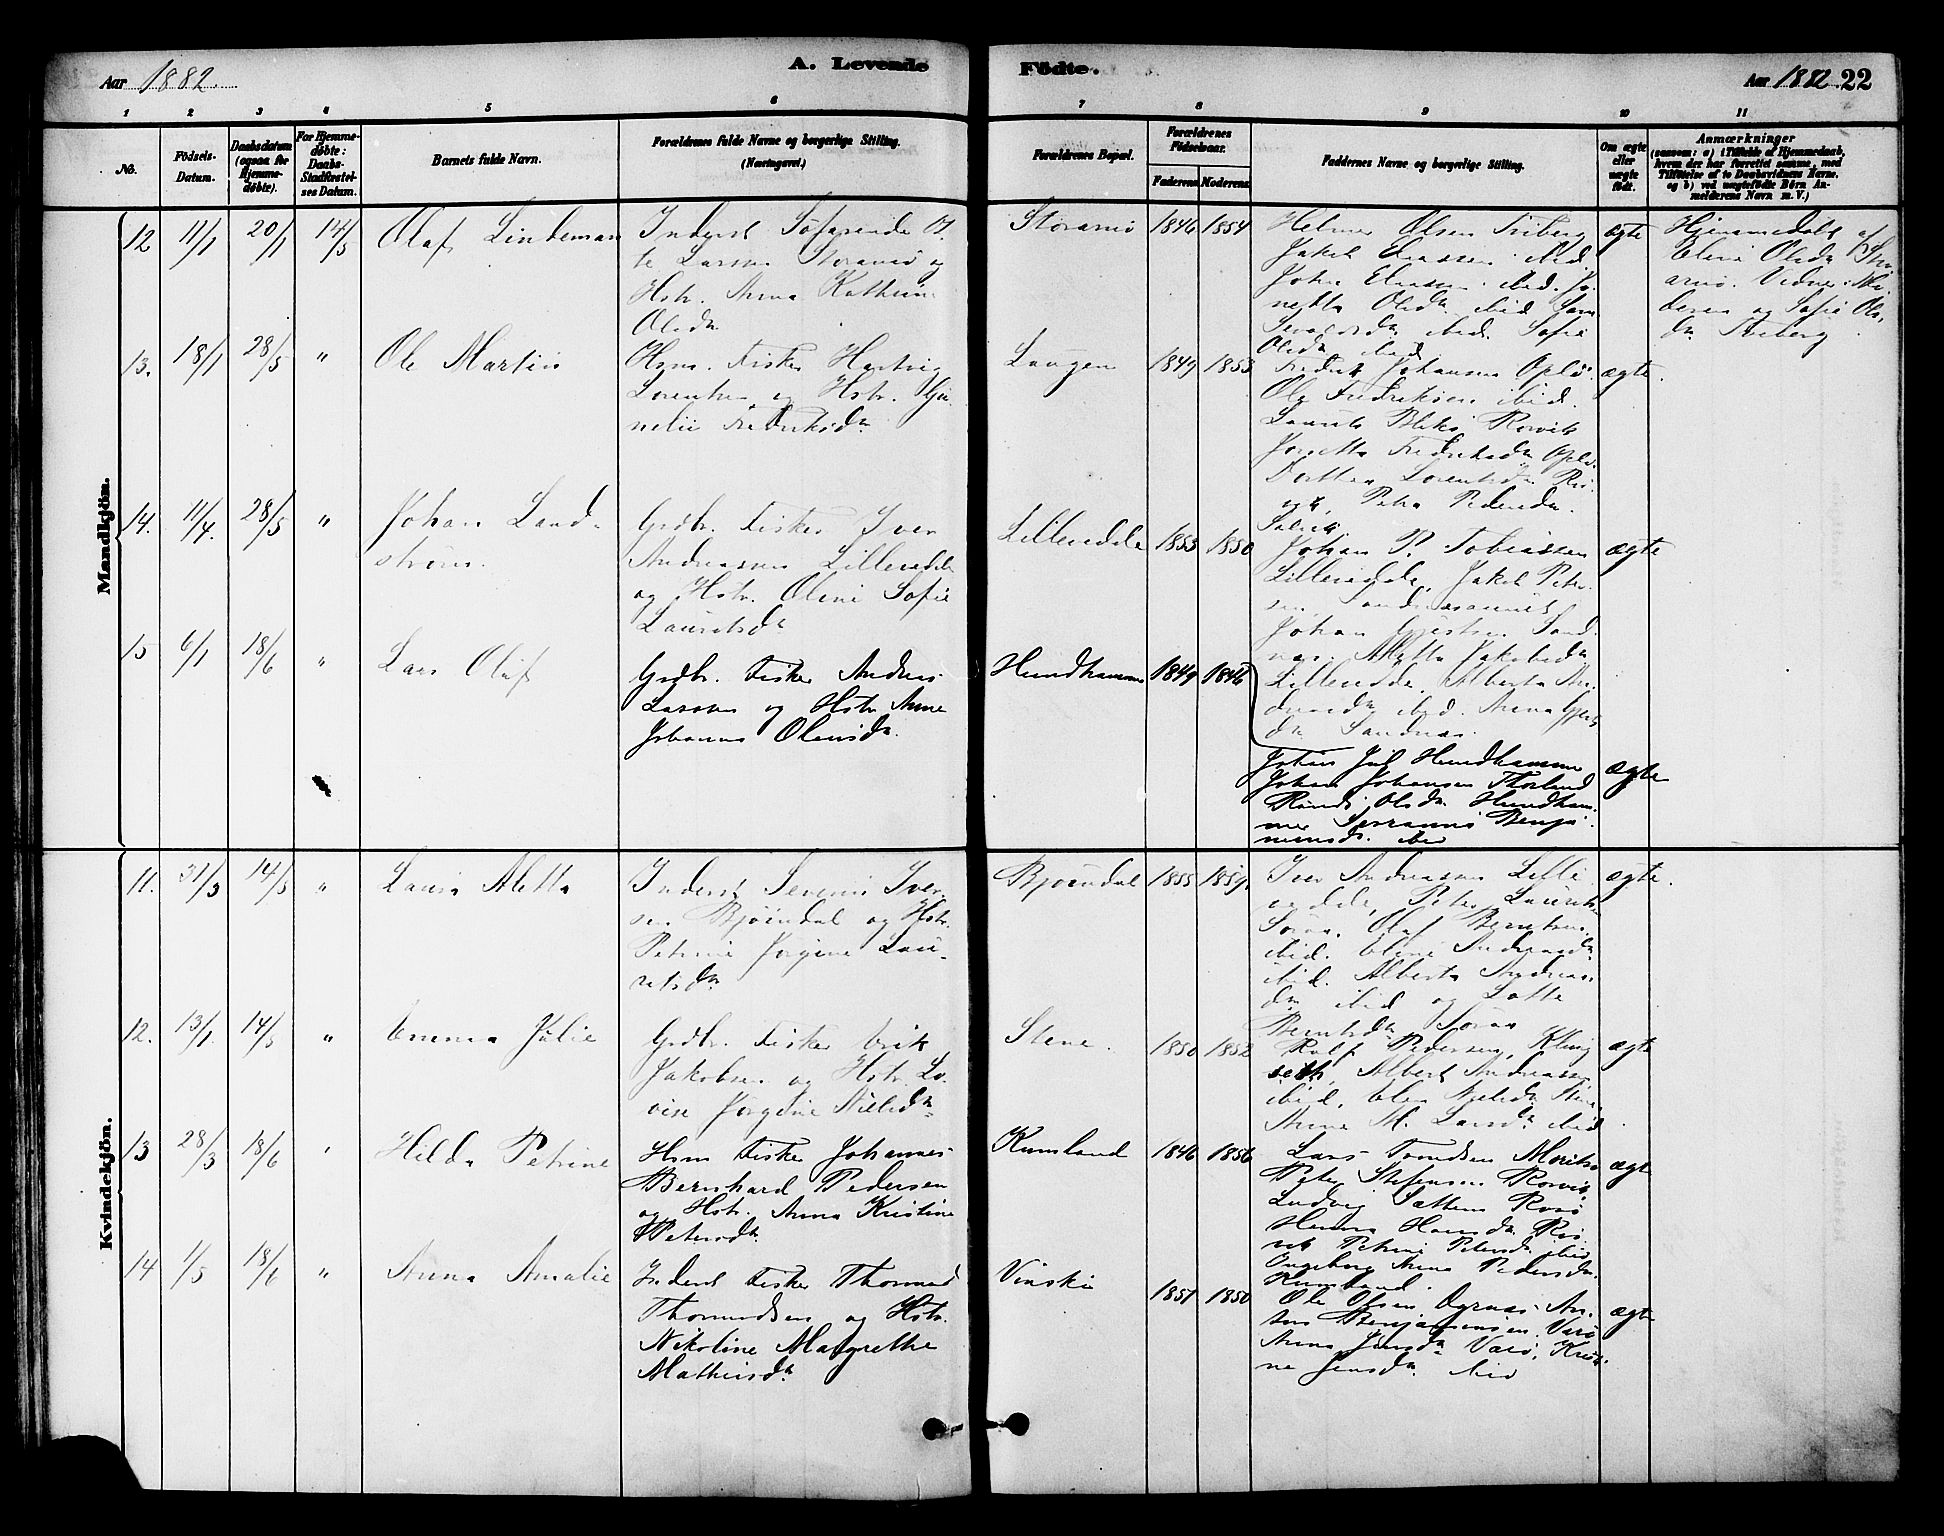 Aar 1882.
A. Levende
Födte.
Aar 1882. 22
1 2 3 4 5 6 7 8 9 10 11
No.
Födsels-
Datum.
Daabsdatum
(ogsaa for
Hjemme-
døbte).
For Hjemme-
døbte:
Daabs-
Stadfæstel-
ses Datum.
Barnets fulde Navn.
Forældrenes fulde Navne og borgerlige Stilling.
(Næringsvei.)
Forældrenes Bopæl.
Forældrenes
Födselsaar.
Faderens
Moderens
Faddernes Navne og borgerlige Stilling.
Om ægte
eller
uægte
födt.
Anmærkninger
(saasom: a) i Tilfælde af Hjemmedaab,
hvem der har forrettet samme, med
Tilföielse af to Daabsvidners Navne,
og b) ved uægtefödte Börn An-
melderens Navn m. V.)
Mandkjön.
12 11/1 20/1 14/5 Olaf Lindeman
Inderst Søfarende O.
te Larsen Storamø og
Hstr. Anna Kathrin
Olsdr
Storamø 1846 1854
Helmer Olsen Friberg
Jakob Eliassen ibid
Johan Eliassen ibid. Jo-
Olsdr ibid
ibid. Sofie
Olsdr ibid
ægte
Hjemmedøbt af
Eline Olsdr Stor
amø. Vidner: Mo
deren og Sofie Ols
dr Friberg
13. 18/1 28/5 " Ole Martin
Hsm. Fisker Hartvig
Lorentsen og Hstr. Gu-
nelie Fredriksdr
Laugen 1849 1853
Fredrik Johansen Oplø.
Ole Fredriksen ibid.
Laurits Rørvik
Fredriksdr Oplø.
Dorthea Lorentsdr Rør-
vik, Petra Pedersdr.
ægte.
14. 11/4. 28/5 " Johan Land-
strøm.
Grdbr. Fisker Iver
Andreassen Lilleredde
og Hstr. Oline Sofie
Lauritsdr
Lilleredde 1853 1850
Johan P. Tobiassen
Lilleredde, Jakob Peter-
sen
Johan Gjertsen Sand-
næs. Aletta Jakobsdr
Lilleredde, Alberta An-
dreasdr ibid. Anna Gjerts
dr Sandnæs.
ægte
15 6/1 18/6 " Lars Olaf
Grdbr. Fisker Anders
Larsen og Hstr Anne
Johanna Olausdr.
Hundhammer 1849 1846
Johan Juhl Hundhammer
Johan Johansen Florland
Olsdr Hundham-
mer Benja-
minsdr. ibid
ægte
Kvindekjön.
11. 31/3 14/5 " Laura Aletta
Inderst Severin Iver-
sen Bjørndal og Hstr.
Petrine Jørgine Lau-
ritsdr
Bjørndal 1855 1859.
Iver Andreassen Lille
redde, Peter Lauritsen
Søraa. Olaf Berntsen
ibid. Eline Andreasdr
ibid. Alberta Andreas-
dr ibid og Lotte
Berntsdr Søraa
ægte.
12. 13/1. 14/5 " Emma Julie
Grdbr. Fisker Erik
Jakobsen og Hstr. Lo-
vise Jørgine Nilsdr
Stene. 1850 1852
Rolf Pedersen, Kling
seth, Albert Andreassen
ibid, Elen Nilsdr Stene
Anne M. Larsdr. ibid.
ægte
13 28/3 18/6 " Hilda Petrine
Hsm Fisker Johannes
Bernhard Pedersen
og Hstr. Anna Kristine
Petersdr.
Kumland 1846 1856
Lars Tomdsen
Peter Stefensen Rørvik
Ludvig Rørø
Hansdr. Rør-
vik Petrine Petersdr ibid
Ingeborg Anna Pedersdr.
Kumland.
ægte
14 1/5 18/6 " Anna Amalie
Inderst Fisker Thomas
Thomassen og Hstr.
Nikoline Margrethe
Mathiasdr.
Vinskø 1851 1850
Ole Olsen Dyrnæs An-
ton Benjaminsen Varø
Anna Jensdr Varø, Kris-
ne Jensdr. ibid
ægte